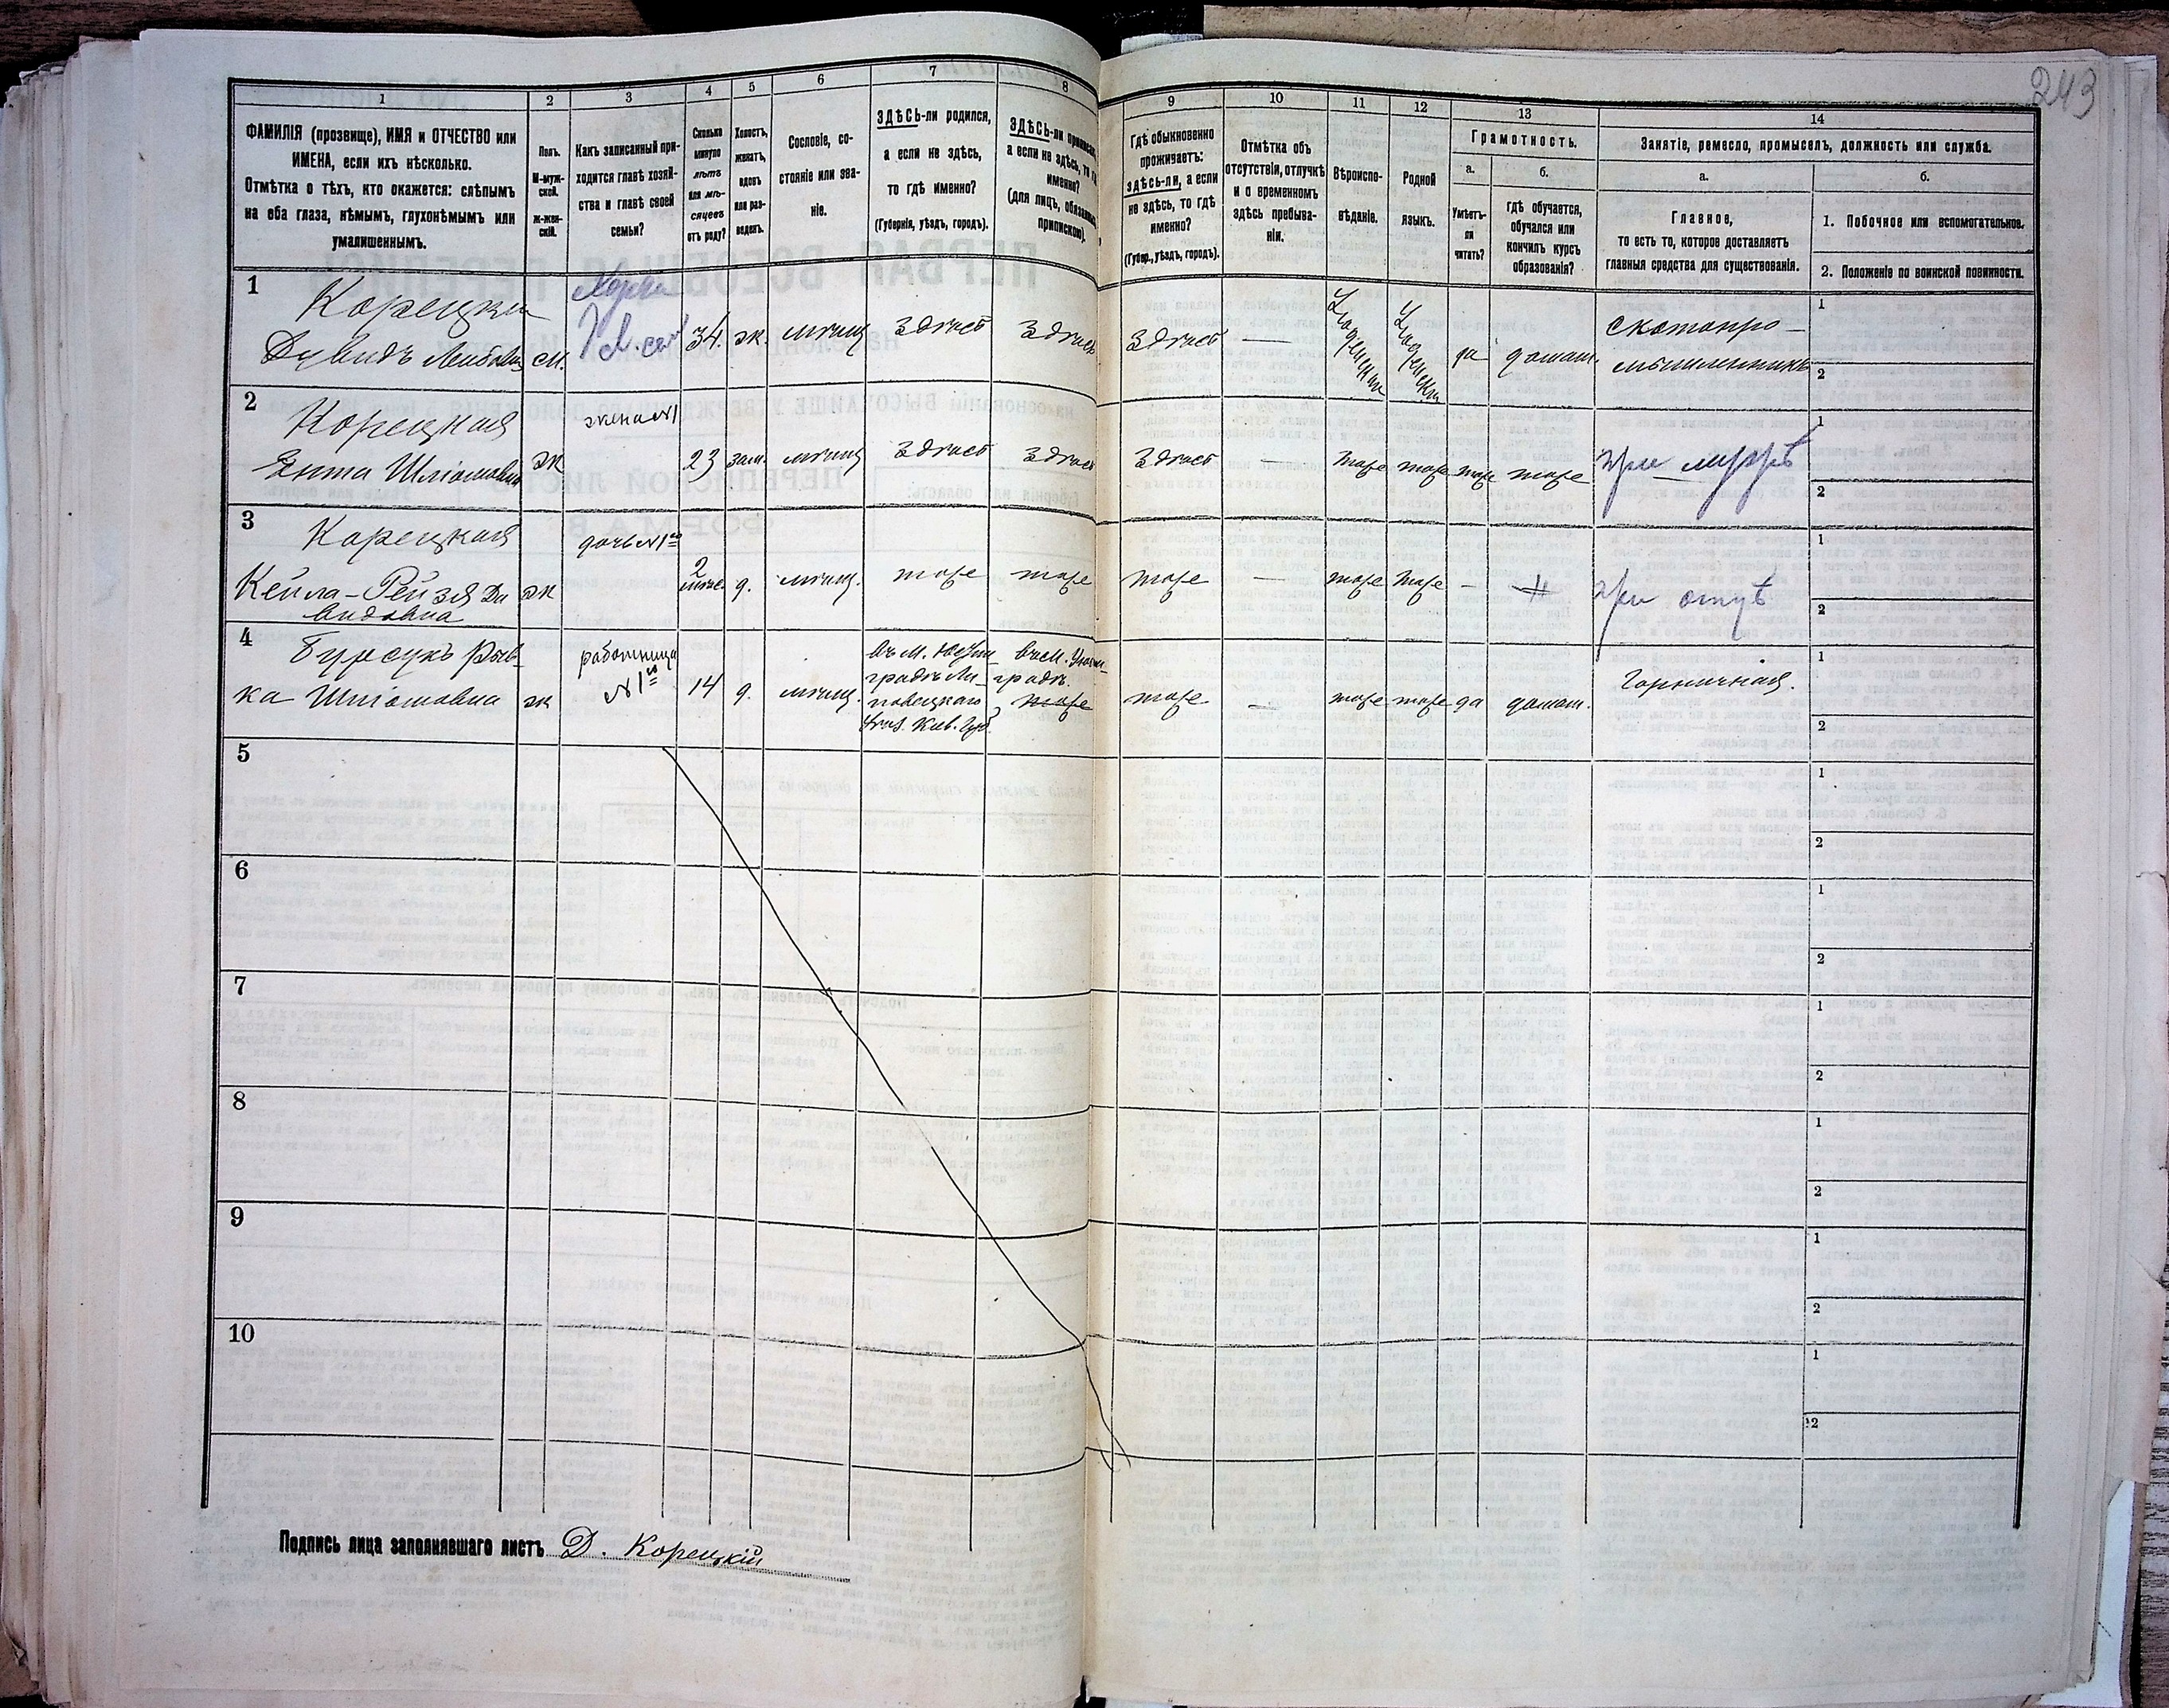 243
1
2
3
4
5
6
7
8
9
10
11
12
13
14
ФАМИЛІЯ (прозвище), ИМЯ и ОТЧЕСТВО или
ИМЕНА, если ихъ нѣсколько.
Отмѣтка о тѣхъ, кто окажется: слѣпымъ
на оба глаза, нѣмымъ, глухонѣмымъ или
умалишеннымъ.
Полъ.
М-муж-
ской.
Ж-жен-
скій.
Какъ записанный при-
ходится главѣ хозяй-
ства и главѣ своей
семьи?
Сколько
минуло
лѣтъ
или мѣ-
сяцевъ
отъ роду?
Холостъ,
женатъ,
вдовъ
или раз-
веденъ.
Сословіе, со-
стояніе или зва-
ніе.
ЗДѢСЬ-ли родился,
а если не здѣсь,
то гдѣ именно?
(Губернія, уѣздъ, городъ).
ЗДѢСЬ-ли
а если не здѣсь, то гдѣ
именно?
(для лицъ,
припискою).
Гдѣ обыкновенно
проживаетъ:
здѣсь-ли, а если
не здѣсь, то гдѣ
именно?
(Губер., уѣздъ, городъ).
Отмѣтка объ
отсутствіи, отлучкѣ
и о временномъ
здѣсь пребыва-
ніи.
Вѣроиспо-
вѣданіе.
Родной
языкъ.
Грамотность.
а.
б.
Умѣетъ-
ли
читать?
гдѣ обучается,
обучался или
кончилъ курсъ
образованія?
Занятіе, ремесло, промыселъ, должность или служба.
а.
б.
Главное,
то есть то, которое доставляетъ
главныя средства для существованія.
1. Побочное или вспомогательное.
2. Положеніе по воинской повинности.
1
Корецкій
Дувидъ Лейбовъ
м.
34.
ж.
мѣщ
Здѣсь
Здѣсь
Здѣсь
—
Іудейск
да
домаш.
скотопро-
мышленникъ
1
2
2
Корецкая
Ента Шліомовна
ж
жена №1
23
зам.
мѣщ
Здѣсь
Здѣсь
Здѣсь
—
тоже
тоже
тоже
тоже
при мужѣ
1
2
3
Корецкая
Кейла-Рейзя Ду
видовна
ж
дочь №1го
2
д.
мѣщ.
тоже
тоже
тоже
—
тоже
тоже
—
при отцѣ
1
2
4
Бурсукъ Рыв-
ка Шліомовна
ж
работница
№1го
14
д.
мѣщ.
въ м.
градѣ Ли-
повецкаго
Кіев. Губ.
въ м.
градѣ.
тоже
тоже
—
тоже
тоже
да
домаш.
Горничная.
1
2
5
1
2
6
1
2
7
1
2
8
1
2
9
1
2
10
1
2
Подпись лица заполнявшаго листъ Д. Корецкій